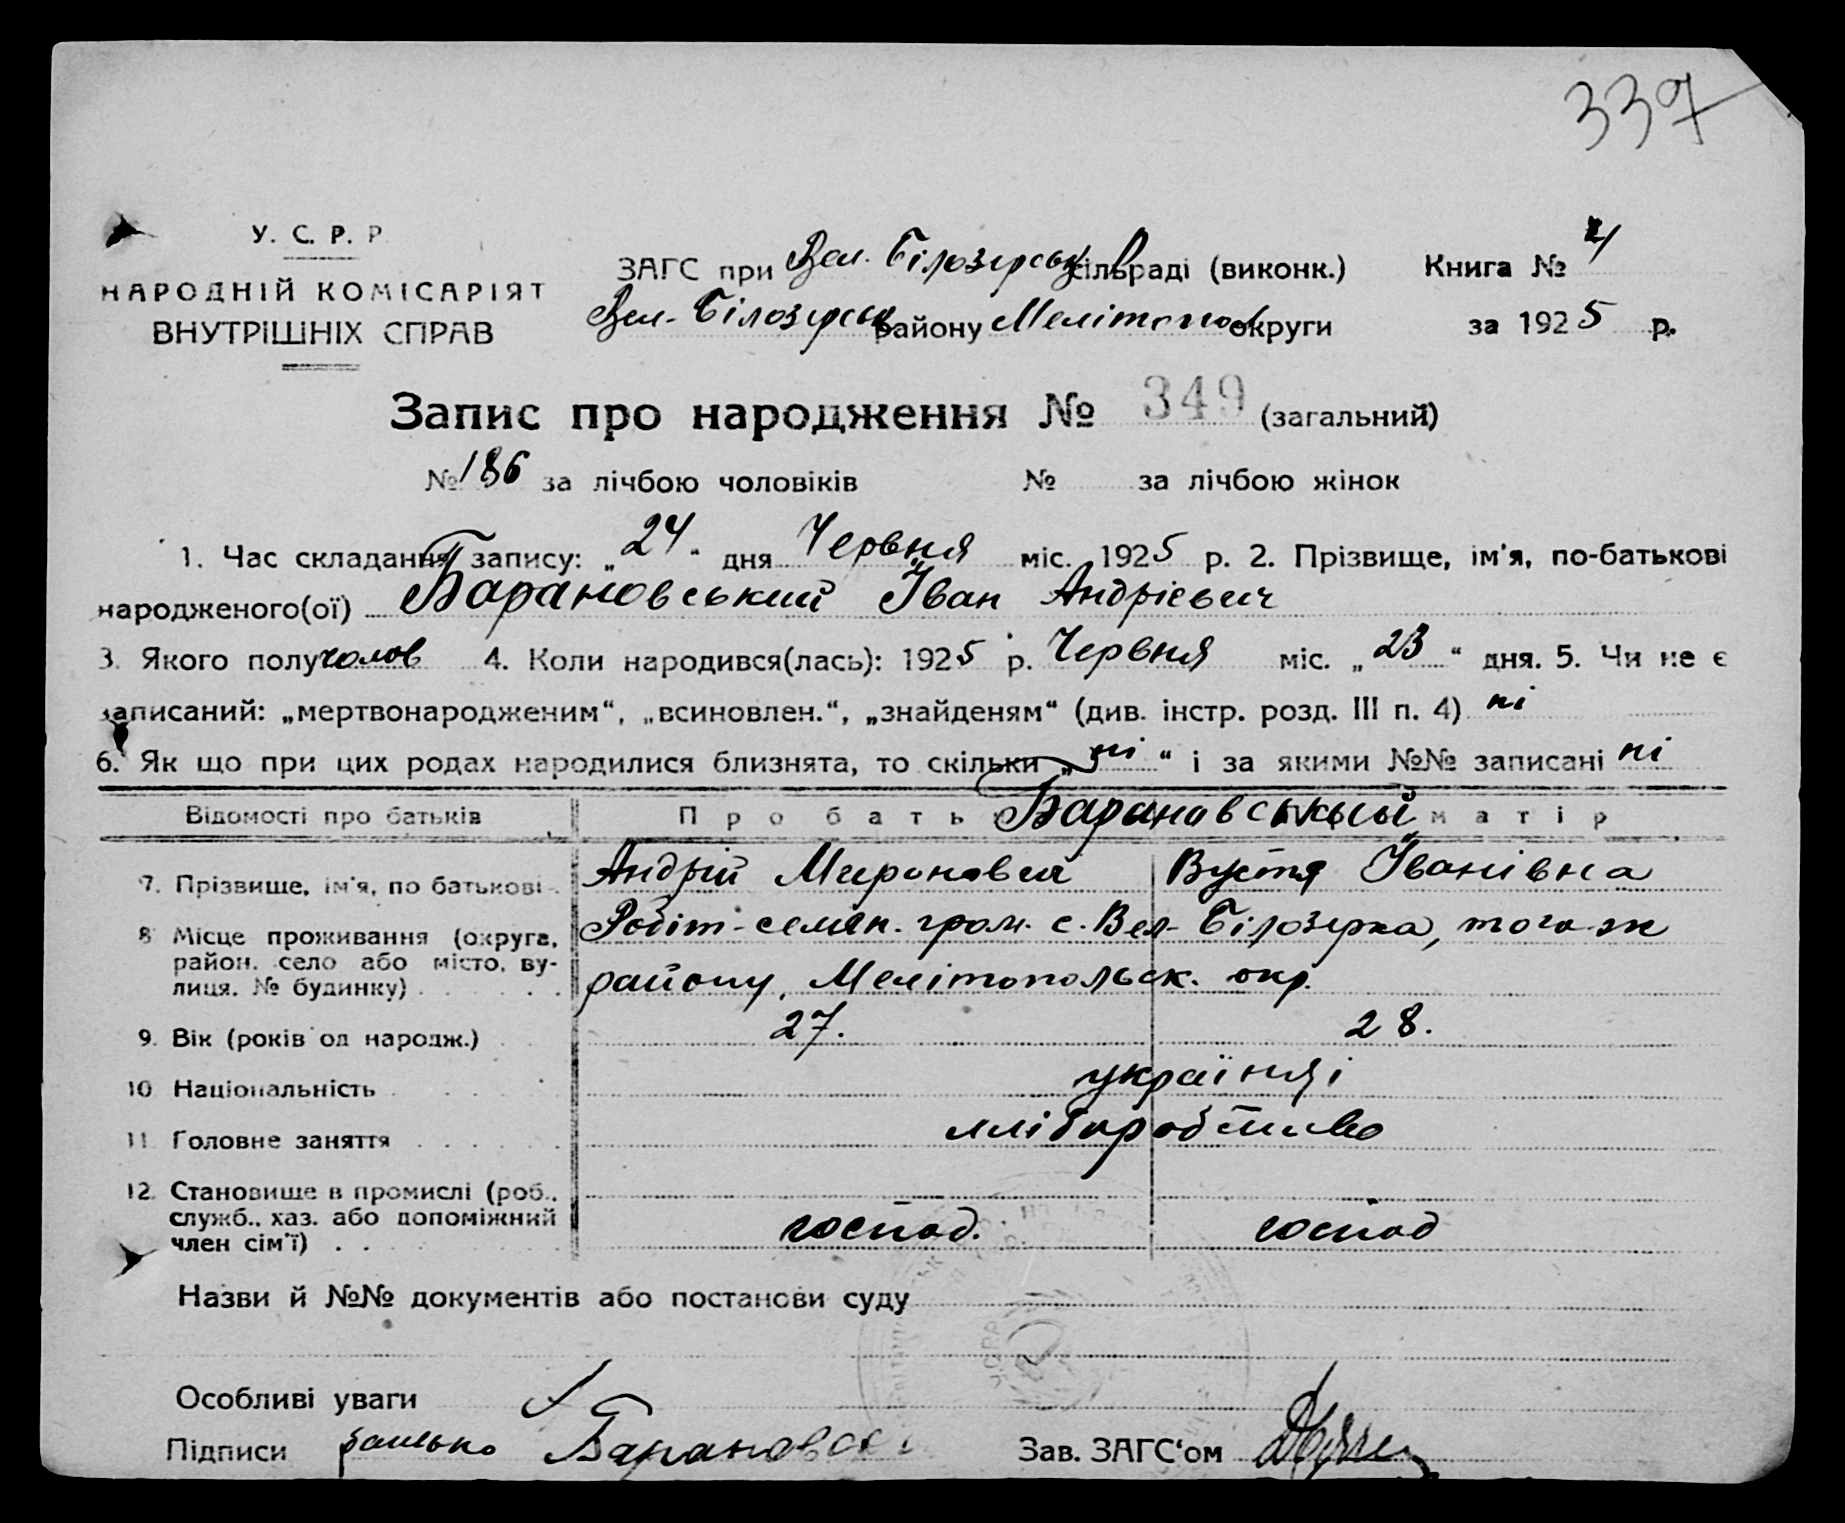 337
У. С. Р. Р.
НАРОДНІЙ КОМІСАРІЯТ
ВНУТРІШНІХ СПРАВ
ЗАГС при Вел. Білозірськ сільраді (виконк.)
Вел. Білозірськ району Мелітопол округи
Книга № 4
за 1925 р.
Запис про народження № 349 (загальний)
№ 186 за лічбою чоловіків № за лічбою жінок
1. Час складання запису: „24“ дня Червня міс. 1925 р. 2. Прізвище, ім'я, по-батькові
народженого(ої) Барановський Іван Андрієвич
3. Якого полу чолов 4. Коли народився(лась): 1925 р. Червня міс. „23“ дня. 5. Чи не є
записаний: „мертвонародженим“, „всиновлен.“, „знайденям“ (див. інстр. розд. III п. 4) ні
6. Як що при цих родах народилися близнята, то скільки „ні“ і за якими №№ записані ні
Відомості про батьків Про бать матір
Барановський
7. Прізвище, ім'я, по батькові Андрій Миронович Вустя Іванівна
8 Місце проживання (округа, Робіт-селян. гром. с. Вел-Білозірка, того-ж
район. село або місто, ву- району, Мелітопольськ. окр.
лиця. № будинку)
9. Вік (років од народж.) 27. 28.
10 Національність україняі
11. Головне заняття хліборобство
12. Становище в промислі (роб.,
служб., хаз. або допоміжний господ. господ
член сім'ї)
Назви й №№ документів або постанови суду
Особливі уваги
Підписи батько Барановськ Зав. ЗАГС'ом